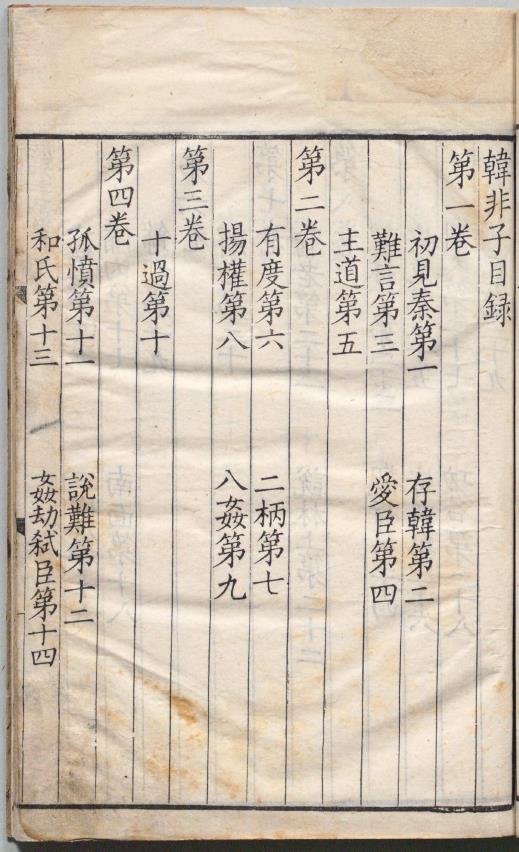 韓非子目録
第一巻
初見秦第一　存韓第二
難言第三　愛臣第四
主道第五
第二巻
有度第六　二柄第七
揚權第八　八姦第九
第三巻
十過第十
第四巻
孤憤第十一　說難第十二
和氏第十三　姦劫弑臣第十四